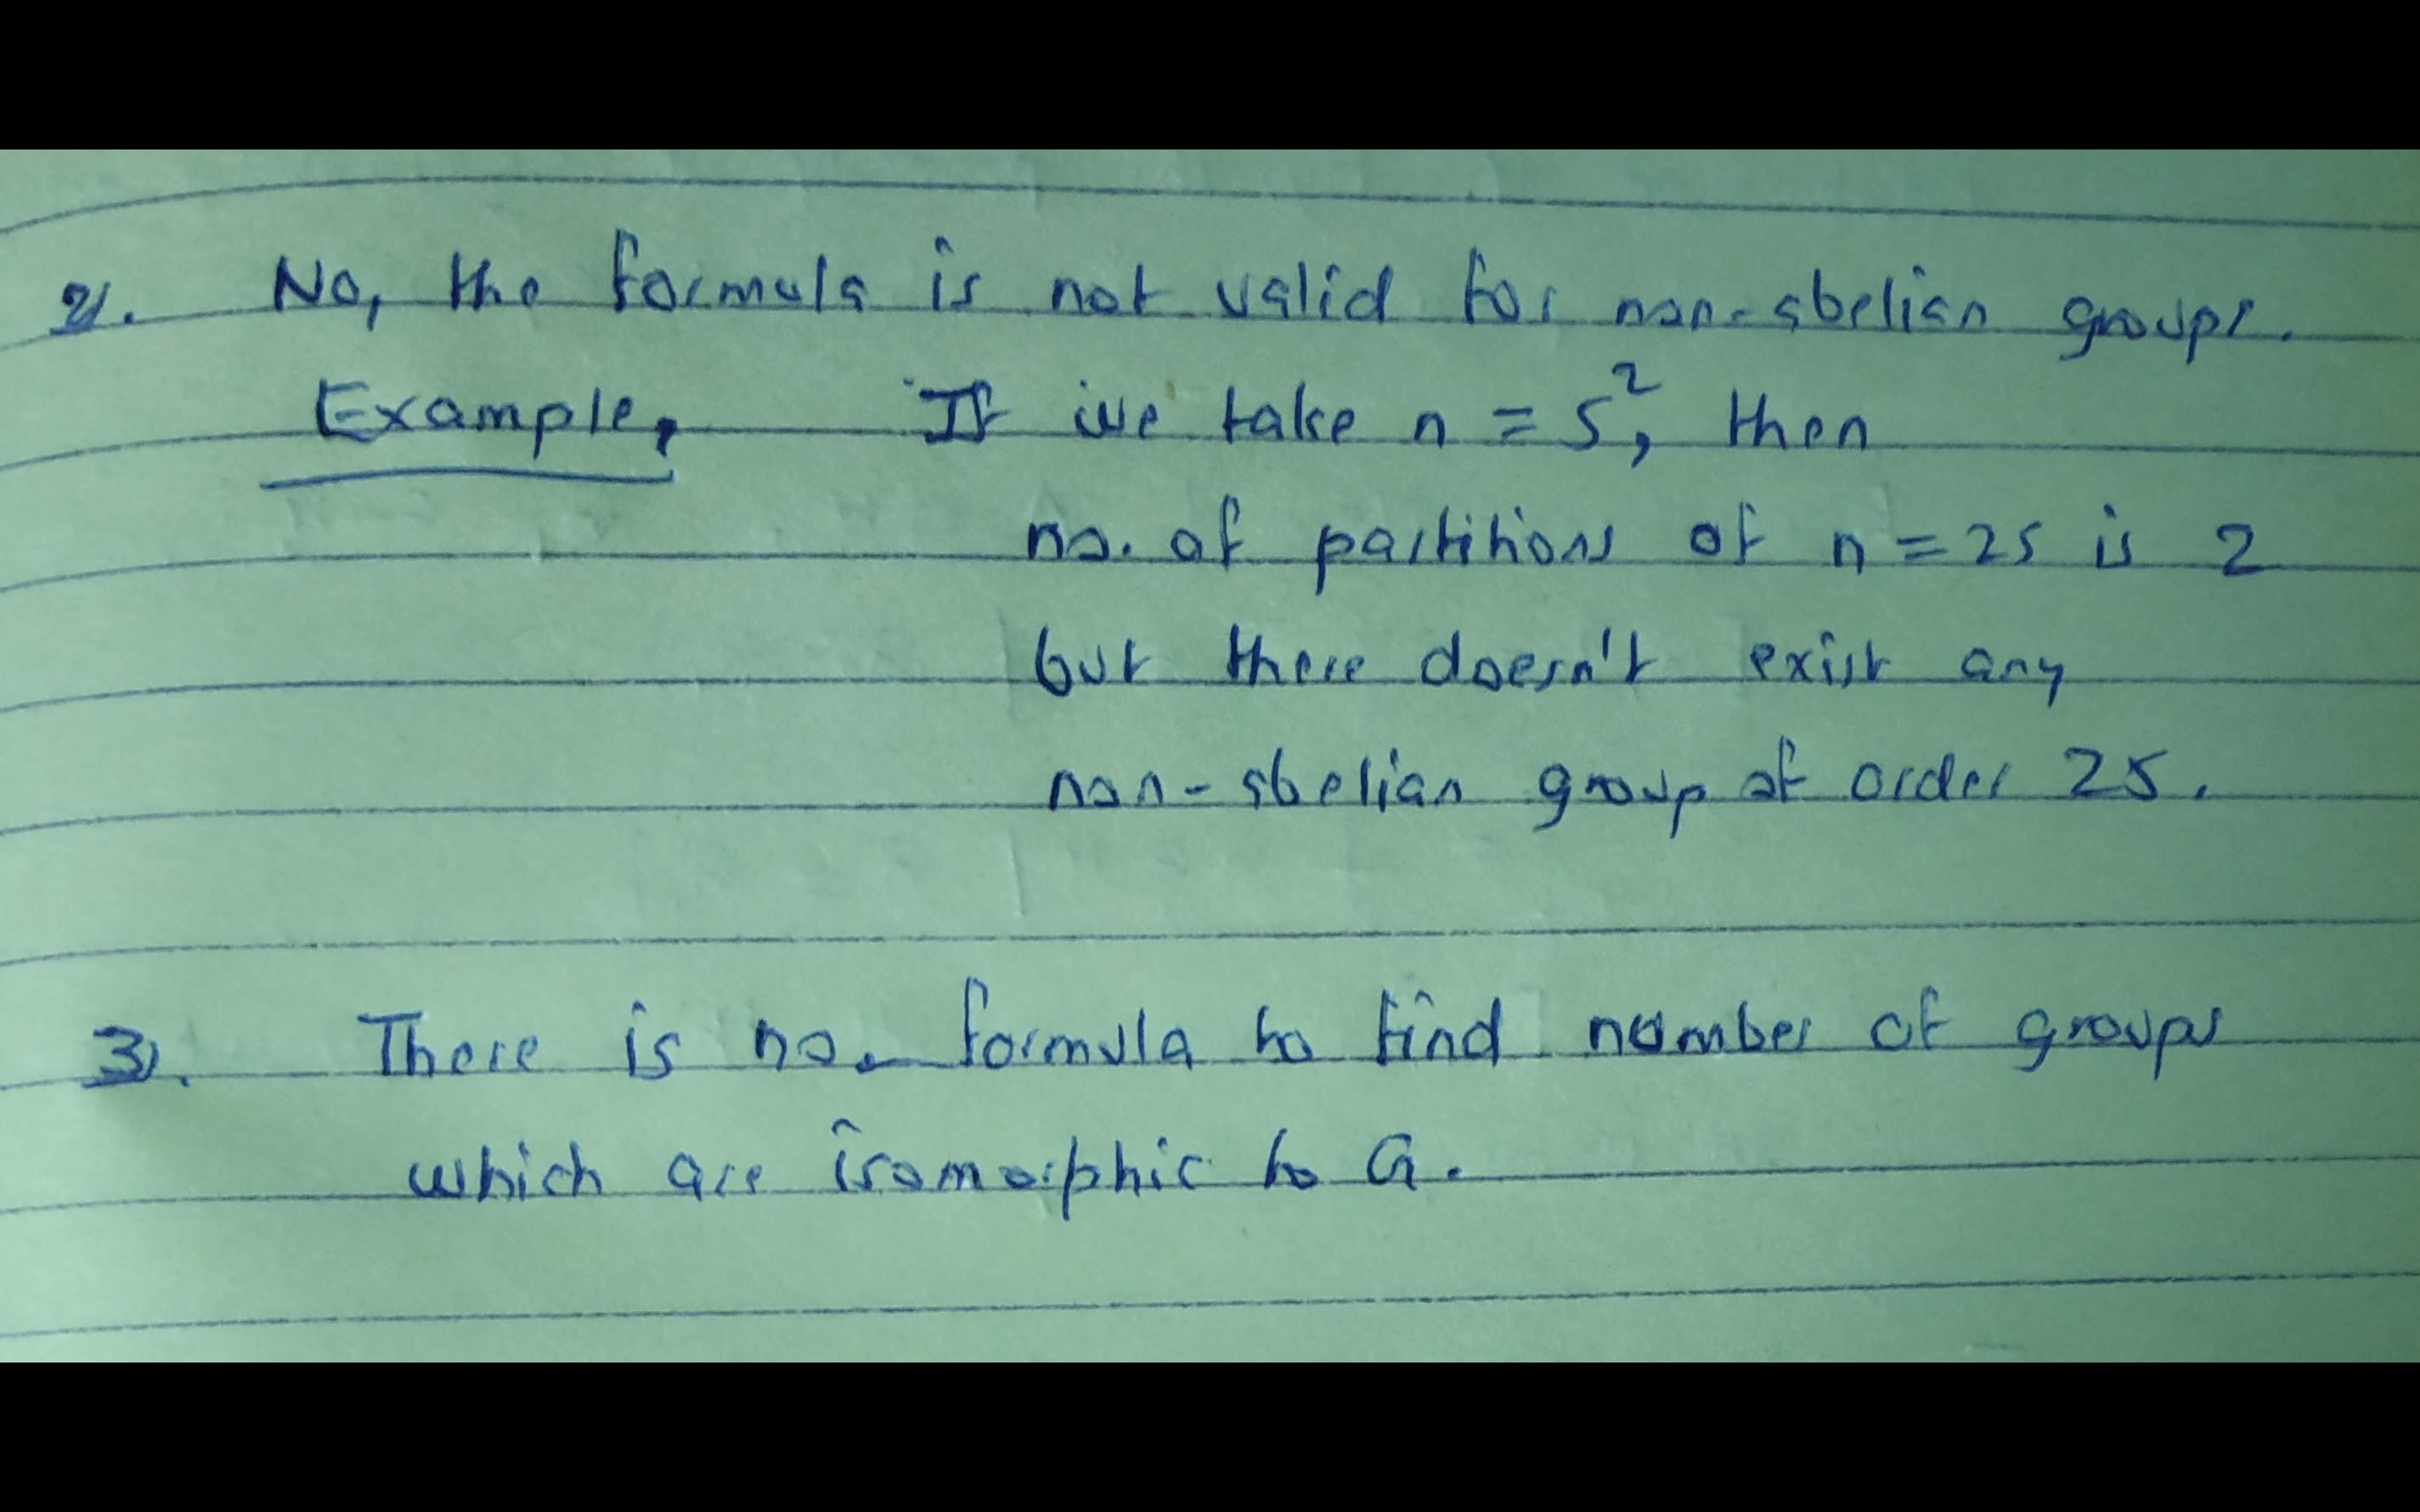 2. No, the formula is not valid for non-abelian groups.
Example, If we take n = 5², then
no. of partitions of n = 25 is 2
but there doesn't exist any
non-abelian group of order 25.
3. There is no. formula to find number of groups
which are isomorphic to G.